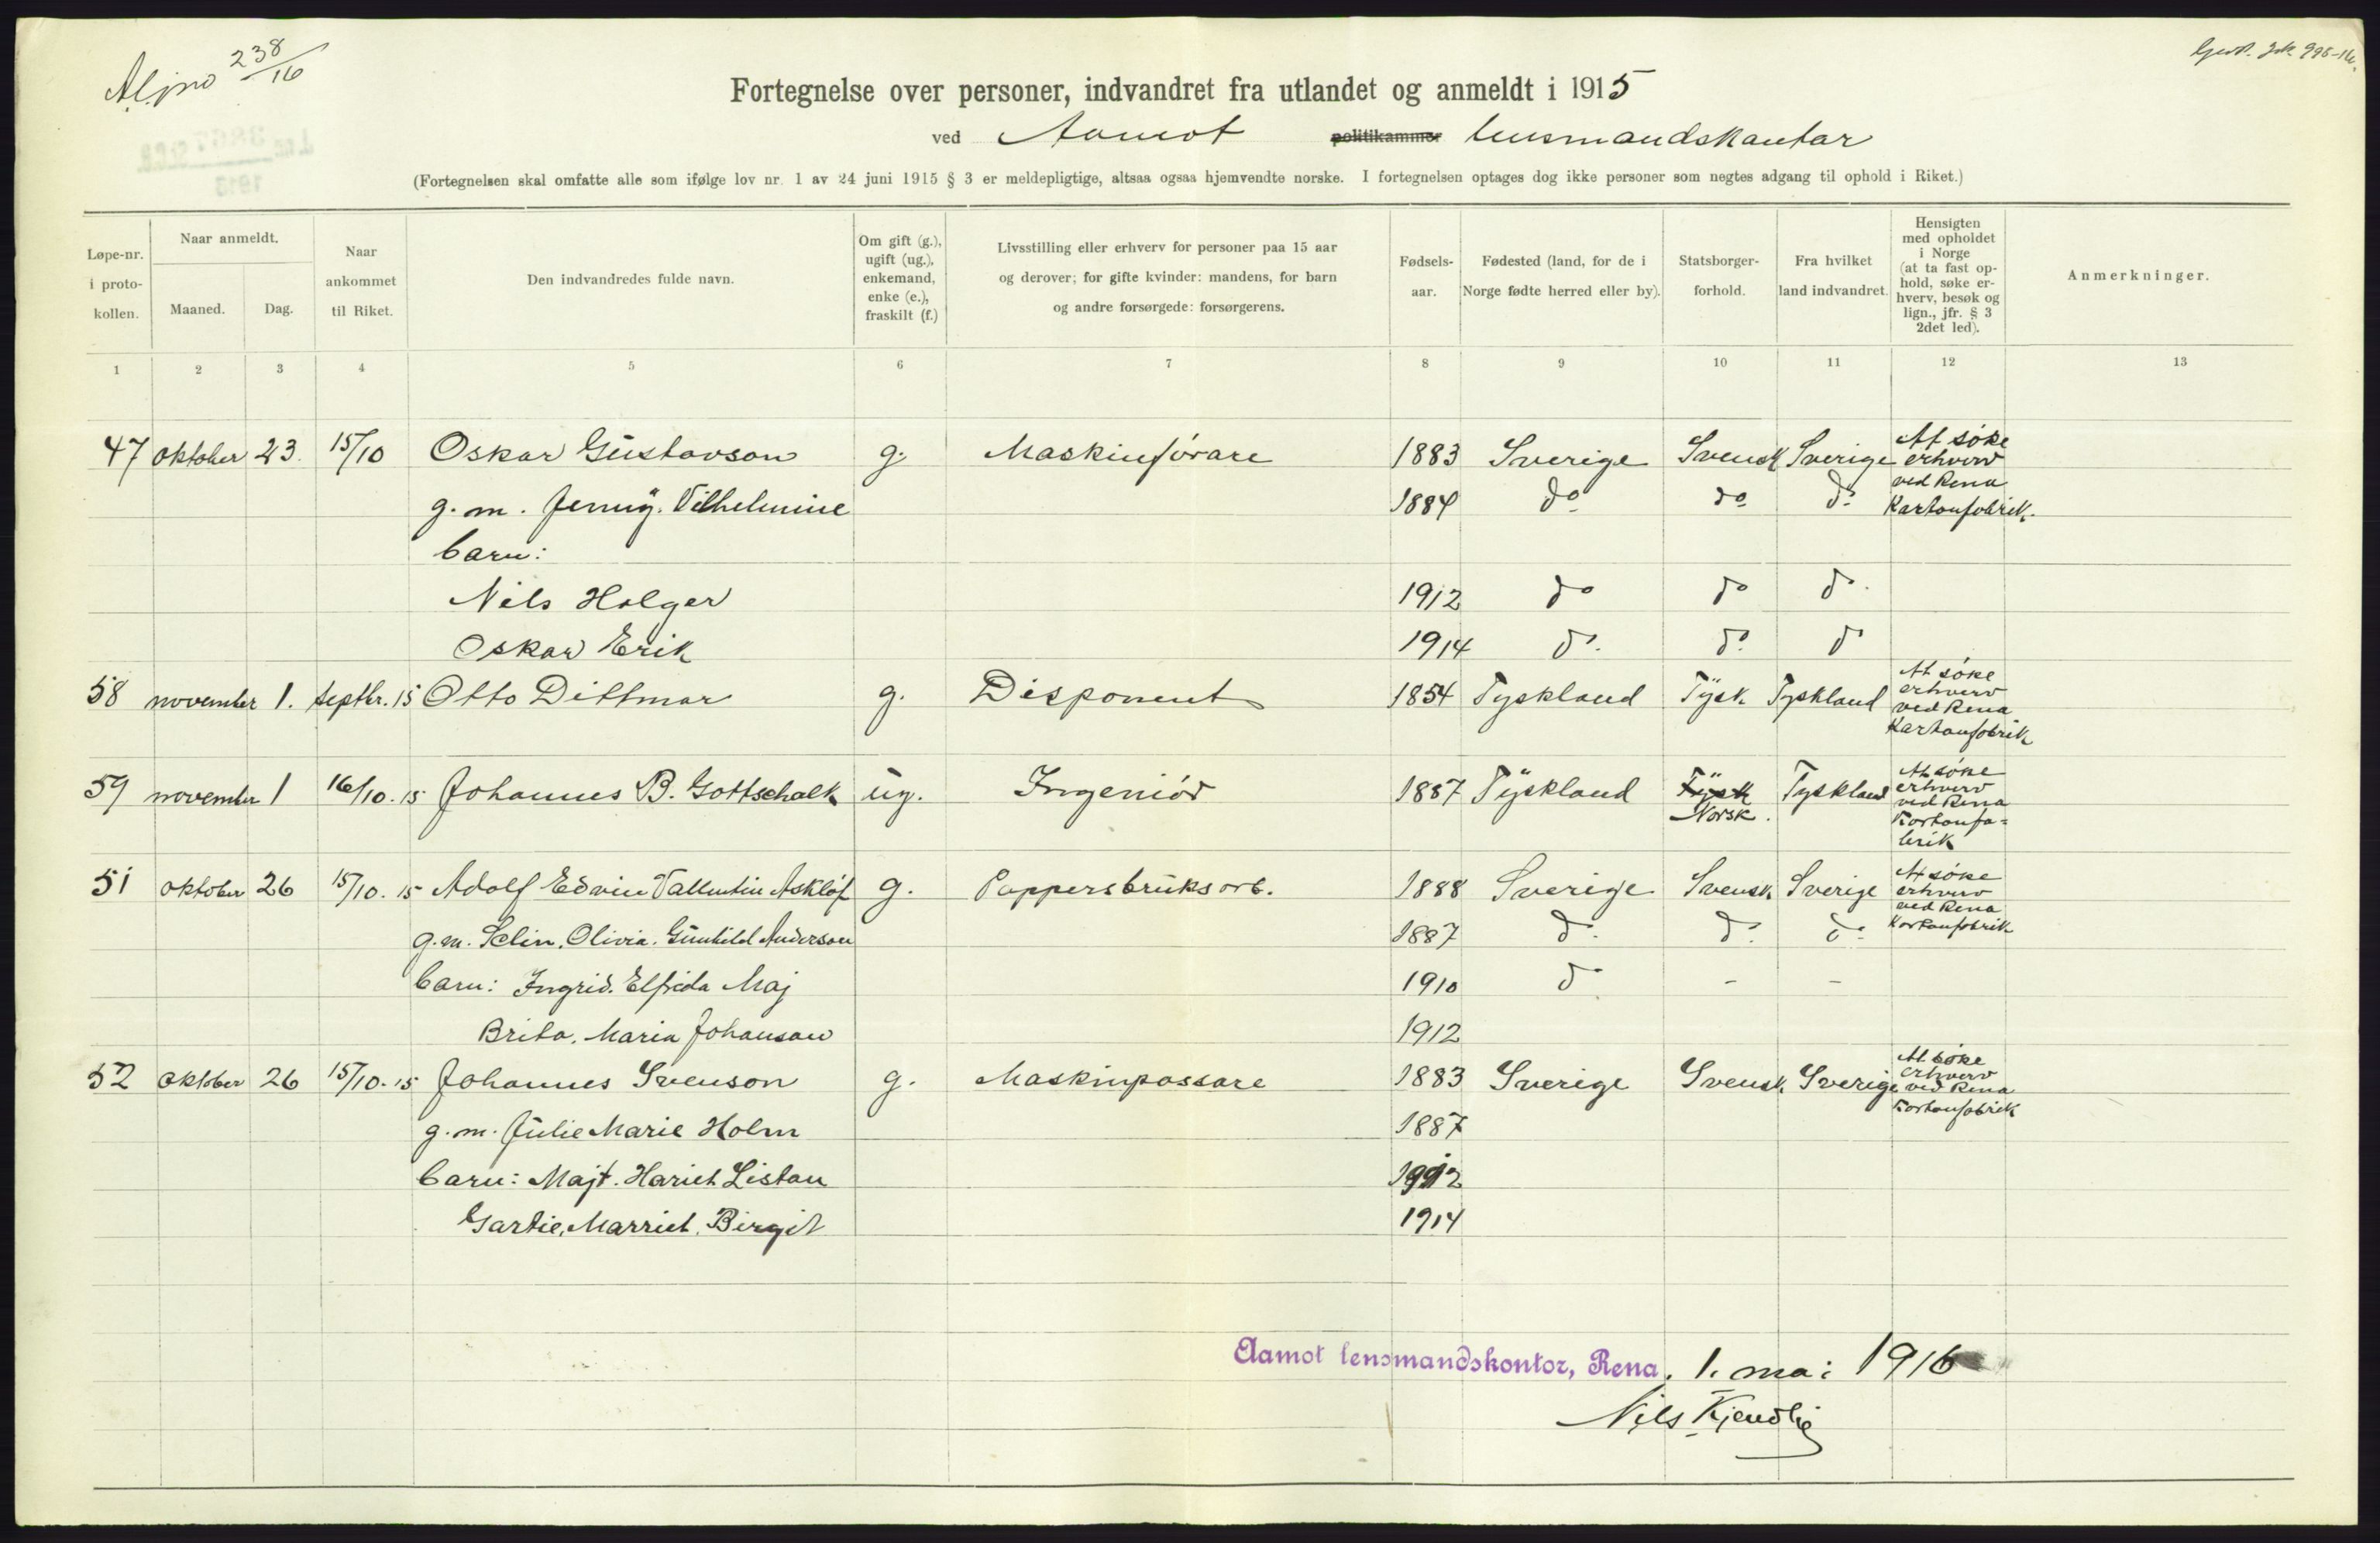 238/16
Fortegnelse over personer, indvandret fra utlandet og anmeldt i 1915
ved Aamot politikammer lensmandskontor
(Fortegnelsen skal omfatte alle som ifølge lov nr. 1 av 24 juni 1915 § 3 er meldepligtige, altsaa ogsaa hjemvendte norske. I fortegnelsen optages dog ikke personer som negtes adgang til ophold i Riket.)
Løpe-nr. i proto- kollen.
Naar anmeldt.
Maaned.
Dag.
Naar ankommet til Riket.
Den indvandredes fulde navn.
Om gift (g.), ugift (ug.), enkemand, enke (e.), fraskilt (f.)
Livsstilling eller erhverv for personer paa 15 aar
og derover; for gifte kvinder: mandens, for barn
og andre forsørgede: forsørgerens.
Fødsels- aar.
Fødested (land, for de i Norge fødte herred eller by).
Statsborger- forhold.
Fra hvilket land indvandret.
Hensigten med opholdet i Norge (at ta fast op- hold, søke er- hverv, besøk og lign., jfr. § 3 2det led).
Anmerkninger.
1 2 3 4 5 6 7 8 9 10 11 12 13
47 oktober 23. 15/10 Oskar Gustavson g. Maskinförare 1883 Sverige Svensk Sverige At søke erhverv ved Rena Kartonfabrik.
g. m. Jenny. Vilhelmine 1884 do do do
barn:
Nils Holger 1912 do do do.
Oskar Erik 1914 do. do. do
58 november 1. septbr. 15 Otto Dittmar g. Disponent 1854 Tyskland Tysk Tyskland At søke erhverv ved Rena Kartonfabrik
59 november 1 16/10. 15 Johannes B. Gottschalk ug. Ingeniör 1887 Tyskland Tysk Norsk. Tyskland At søke erhverv ved Rena Kartonfa= brik
51 oktober 26 15/10. 15 Adolf Edvin Vallentin Asklöf g. Pappersbruksarb. 1888 Sverige Svensk Sverige At søke erhverv ved Rena Kartonfabrik
g. m. Selin. Olivia. Gunhild Anderson 1887 do. do. do.
barn: Ingrid. Elfrida Maj 1910 do - -
Brita. Maria Johanson 1912
52 oktober 26 15/10. 15 Johannes Svenson g. Maskinpassare 1883 Sverige Svensk Sverige At søke erhverv ved Rena Kartonfabrik
g. m. Julie Marie Holm 1887
barn: Majt. Hariet Listau 1912
Gartie, Marriet. Birgit 1914
Aamot lensmandskontor, Rena, 1. mai 1916
Nils Kjendlie